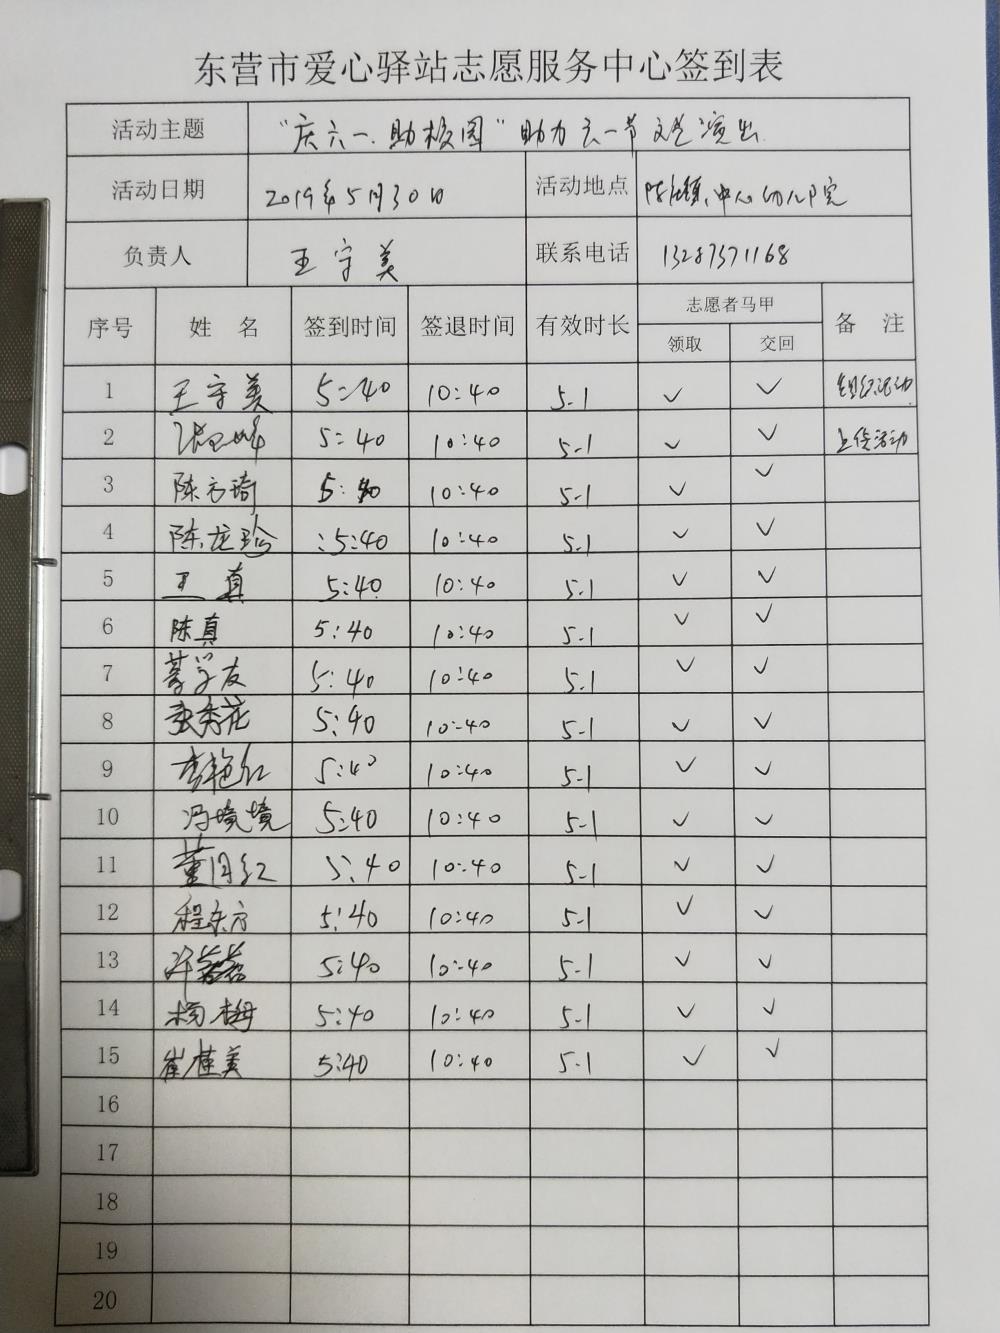 东营市爱心驿站志愿服务中心签到表
活动主题 "庆六一、助校园"助力六一节文艺演出
活动日期 2019年5月30日 活动地点 中心幼儿院
负责人 王守美 联系电话 13287371168
序号 姓 名 签到时间 签退时间 有效时长 志愿者马甲 备 注
领取 交回
1 王守美 5:40 10:40 5.1 ✓ ✓ 组织活动
2 10:40 5.1 ✓ ✓ 上传活动 5:40
3 陈方琦 5:40 10:40 5.1 ✓ ✓
4 陈龙珍 :5:40 10:40 5.1 ✓ ✓
5 王真 5:40 10:40 5.1 ✓ ✓
6 陈真 5:40 10:40 5.1 ✓ ✓
7 5:40 10:40 5.1 ✓ ✓
8 张秀花 5:40 10:40 5.1 ✓ ✓
9 李艳红 5:40 10:40 5.1 ✓ ✓
10 冯境境 5:40 10:40 5.1 ✓ ✓
11 董月红 5:40 10:40 5.1 ✓ ✓
12 程东方 5:40 10:40 5.1 ✓ ✓
13 许 5:40 10:40 5.1 ✓ ✓
14 杨梅 5:40 10:40 5.1 ✓ ✓
15 崔桂美 5:40 10:40 5.1 ✓ ✓
16
17
18
19
20